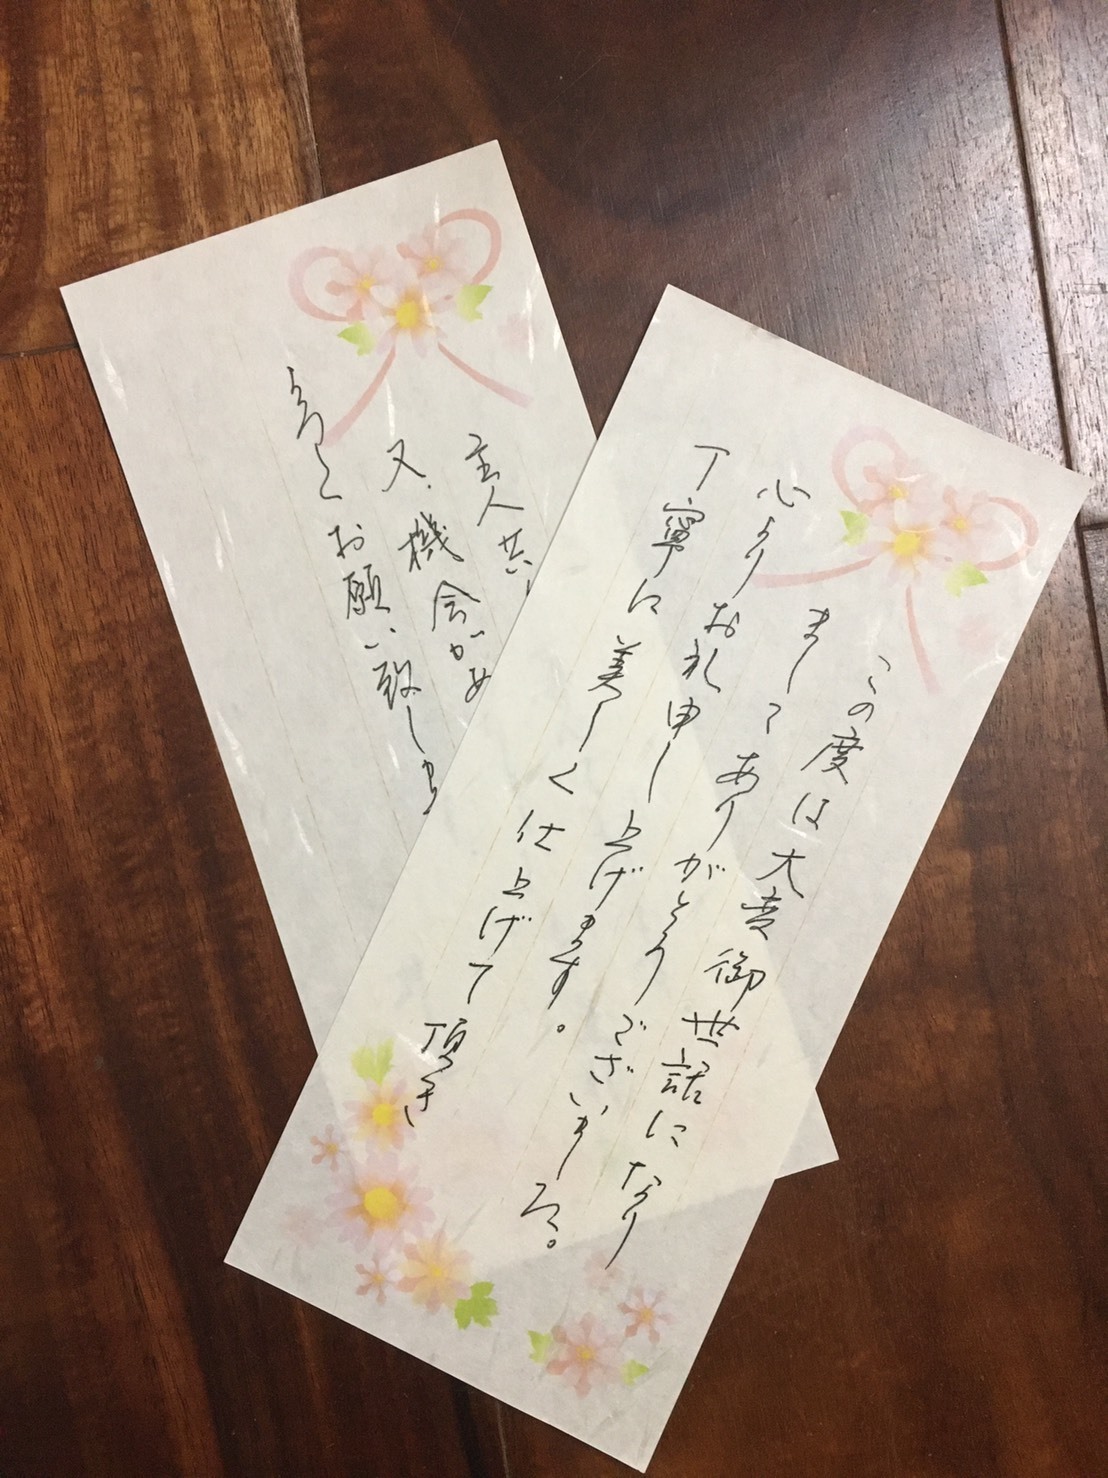 この度は大変御世話になり
ましてありがとうございました。
心よりお礼申し上げます。
丁寧に美しく仕上げて頂き
主人共
又、機会があ
よろしくお願い致しま